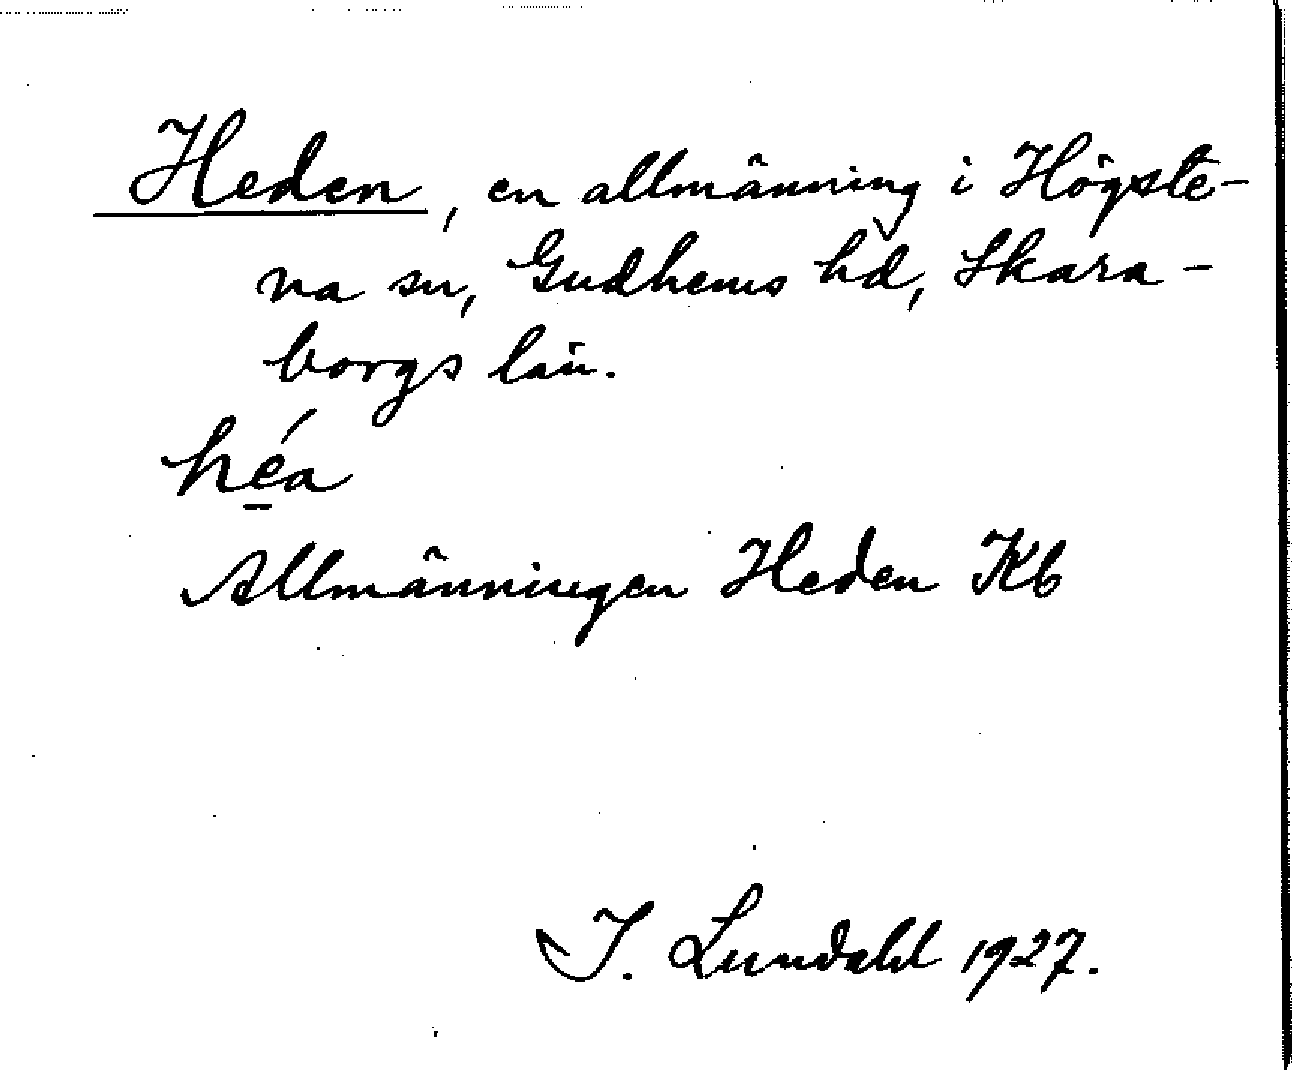 Heden, en allmänning i Högste-
na sn, Gudhems hd, Skara-
borgs län.
hé̱a
Allmänningen Heden Kb
I. Lundahl 1927.